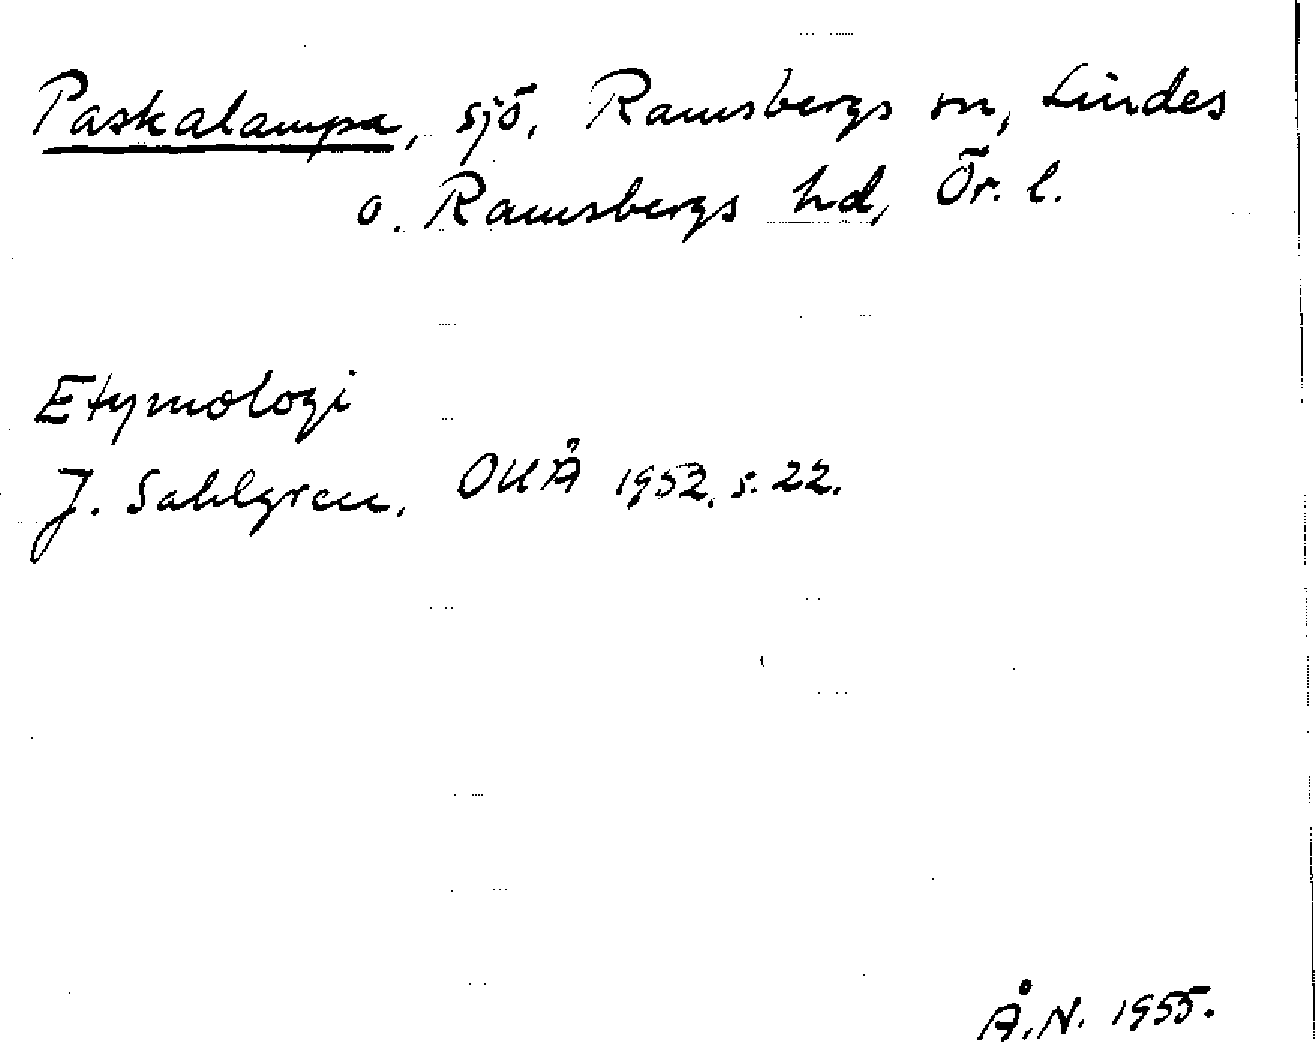 Paskalampa, sjö, Ramsbergs sn, Lindes
o. Ramsbergs hd, Ör. l.
Etymologi
J. Sahlgren, OUÅ 1952, s. 22.
Å.N. 1955.